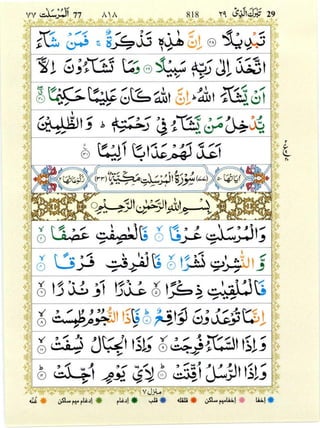 المرسلت ٧٧ 77 ٨١٨ 818 تبرك الذي ٢٩ 29
تَبْدِيْلًا ۝٢٨ اِنَّ هٰذِهٖ تَذْكِرَةٌ ۚ فَمَنْ شَآءَ
اتَّخَذَ اِلٰى رَبِّهٖ سَبِيْلًا ۝٢٩ وَمَا تَشَآءُوْنَ اِلَّاۤ
اَنْ يَّشَآءَ اللّٰهُ ؕ اِنَّ اللّٰهَ كَانَ عَلِيْمًا حَكِيْمًا ۝٣٠
يُّدْخِلُ مَنْ يَّشَآءُ فِيْ رَحْمَتِهٖ ؕ وَالظّٰلِمِيْنَ
اَعَدَّ لَهُمْ عَذَابًا اَلِيْمًا ۝٣١
سُوْرَةُ الْمُرْسَلٰتِ مَكِّيَّةٌ
بِسْمِ اللّٰهِ الرَّحْمٰنِ الرَّحِيْمِ
وَالْمُرْسَلٰتِ عُرْفًا ۝١ فَالْعٰصِفٰتِ عَصْفًا ۝٢
وَّالنّٰشِرٰتِ نَشْرًا ۝٣ فَالْفٰرِقٰتِ فَرْقًا ۝٤
فَالْمُلْقِيٰتِ ذِكْرًا ۝٥ عُذْرًا اَوْ نُذْرًا ۝٦
اِنَّمَا تُوْعَدُوْنَ لَوَاقِعٌ ۝٧ فَاِذَا النُّجُوْمُ طُمِسَتْ ۝٨
وَاِذَا السَّمَآءُ فُرِجَتْ ۝٩ وَاِذَا الْجِبَالُ نُسِفَتْ ۝١٠
وَاِذَا الرُّسُلُ اُقِّتَتْ ۝١١ لِاَيِّ يَوْمٍ اُجِّلَتْ ۝١٢
منزل ٧
اخفا اخفا میم ساکن قلقله قلب ادغام ادغام میم ساکن غنه